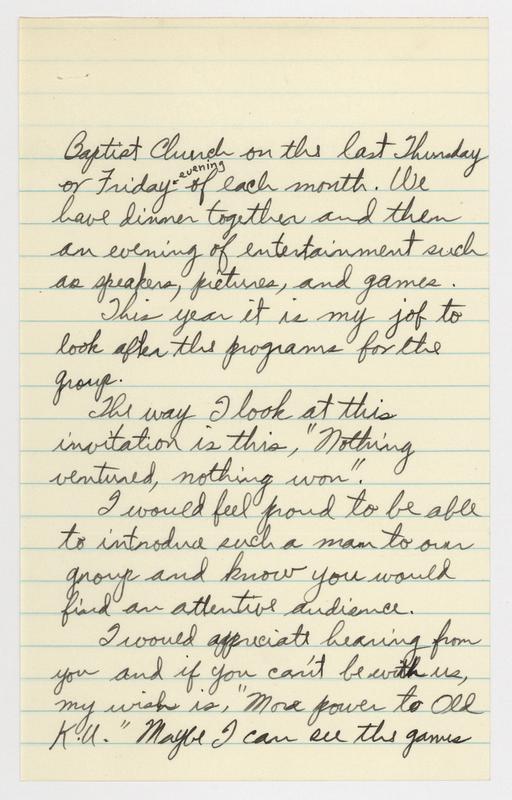 Baptist Church on the last Thursday
or Friday evening of each month. We
have dinner together and then
an evening of entertainment such
as speakers, pictures, and games.
This year it is my jof to
look after the programs for the
group.
The way I look at this
invitation is this, "Nothing
ventured, nothing won".
I would feel proud to be able
to introduce such a man to our
group and know you would
find an attentive audience.
I would appreciate hearing from
you and if you can't be with us,
my wish is, "More power to Old
K.U." Maybe I can see the games